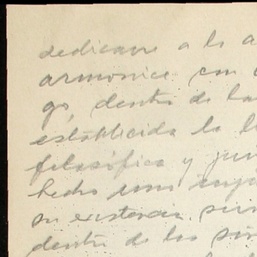 dedicarse a la a
armonice con
go, dentro de la
establecida la l
filosófica y jur
hecho una
su existencia, sin
dentro de los